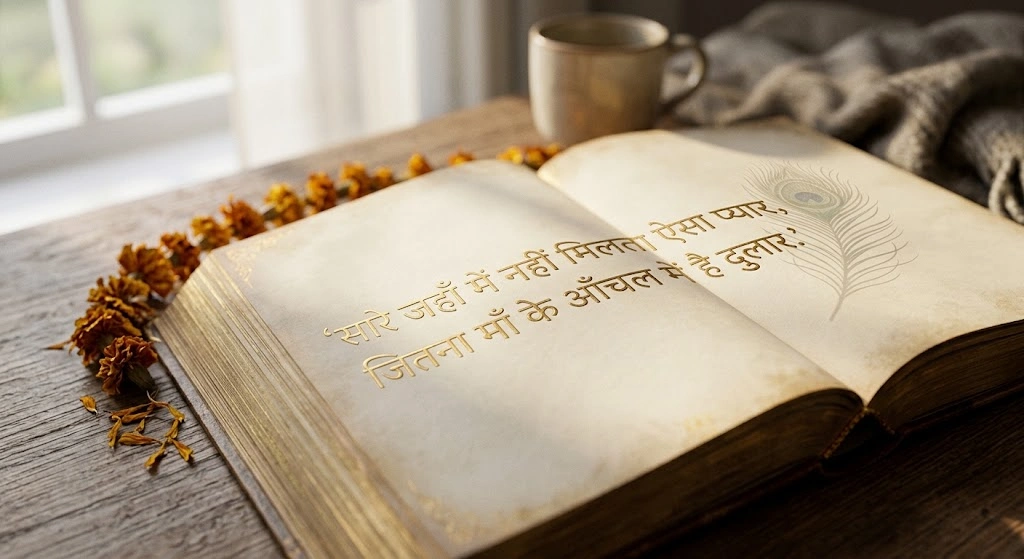 ‘सारे जहाँ में नहीं मिलता ऐसा प्यार,
जितना माँ के आँचल में है दुलार.’